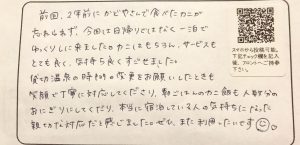 前回、2年前にかどやさんで食べたカニが
忘れられず、今回は日帰りではなく一泊で
ゆっくりしに来ましたのカニはもちろん、サービスも
とても良く、気持ち良くすごせました。
貸切温泉の時間の変更をお願いしたときも
笑顔で丁寧に対応してくださり、朝ごはんのカニ飯も人数分の
おにぎりにしてくださり、本当に宿泊している人の気持ちになった
親切な対応だと感じました。ぜひ、また利用したいです
スマホからも投稿可能。
下記チェック欄を記入
後、フロントへご持参
下さい。